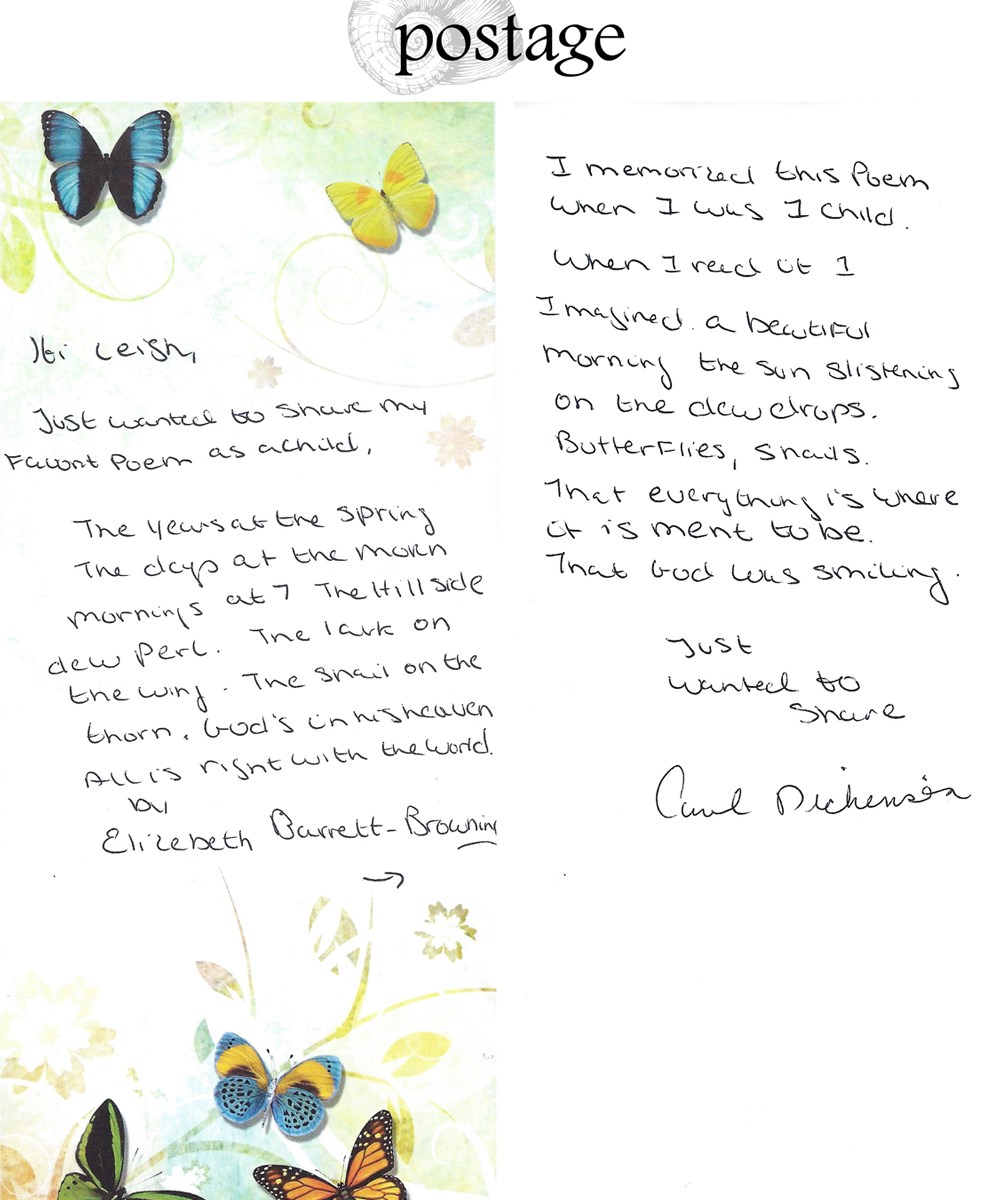 postage
Hi Leigh,
Just wanted to share my
Favort Poem as a child,
The years at the spring
The days at the morn
mornings at 7 The Hill side
dew Perl. The lark on
the wing. The snail on the
thorn. God's in his heaven
All is right with the world.
by
Elizebeth Barrett-Browning
→
I memorized this Poem
when I was I child.
When I reed it I
Imagined a beautiful
morning the sun glistening
on the dew drops.
Butterflies, snails.
That everything is where
it is ment to be.
That God was smiling.
Just
wanted to
share
Carol Dickensen